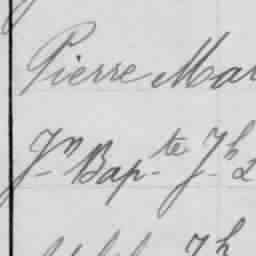 Pierre Mar
Jn Bap-te Jh